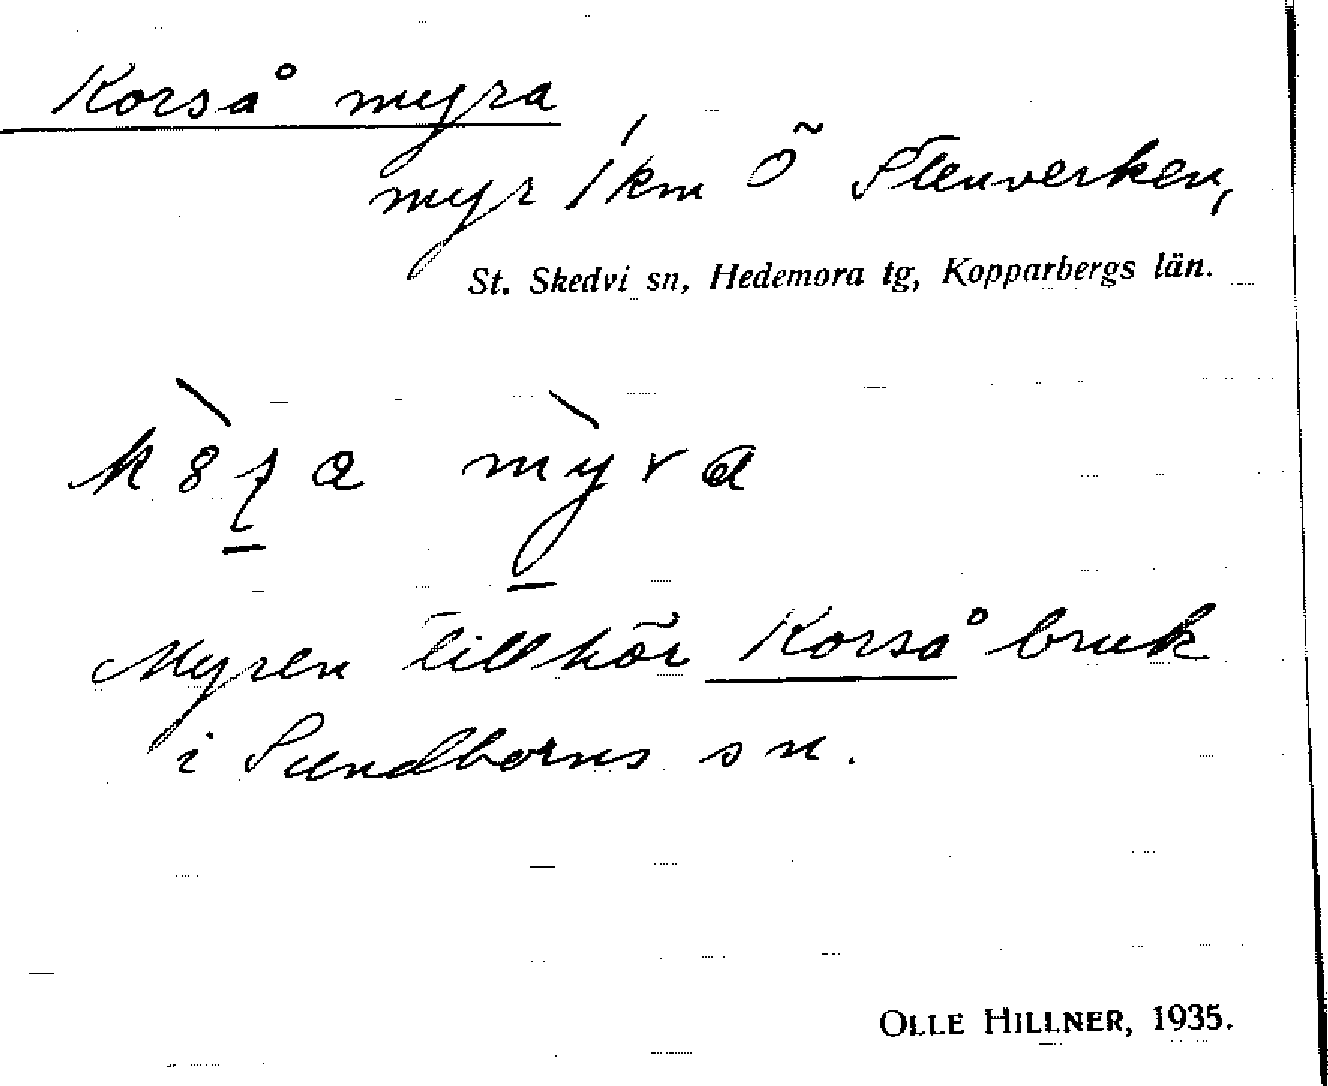 Korså myra
myr 1 km Ö Stenverken,
St. Skedvi sn, Hedemora tg, Kopparbergs län.
myra
Myren tillhör Korså bruk
i Sundborns sn.
OLLE HILLNER, 1935.